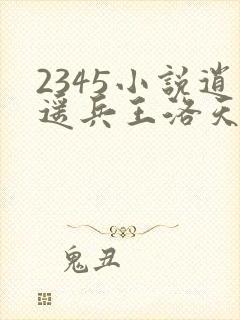 2345小説逍
遥兵王洛天
鬼丑